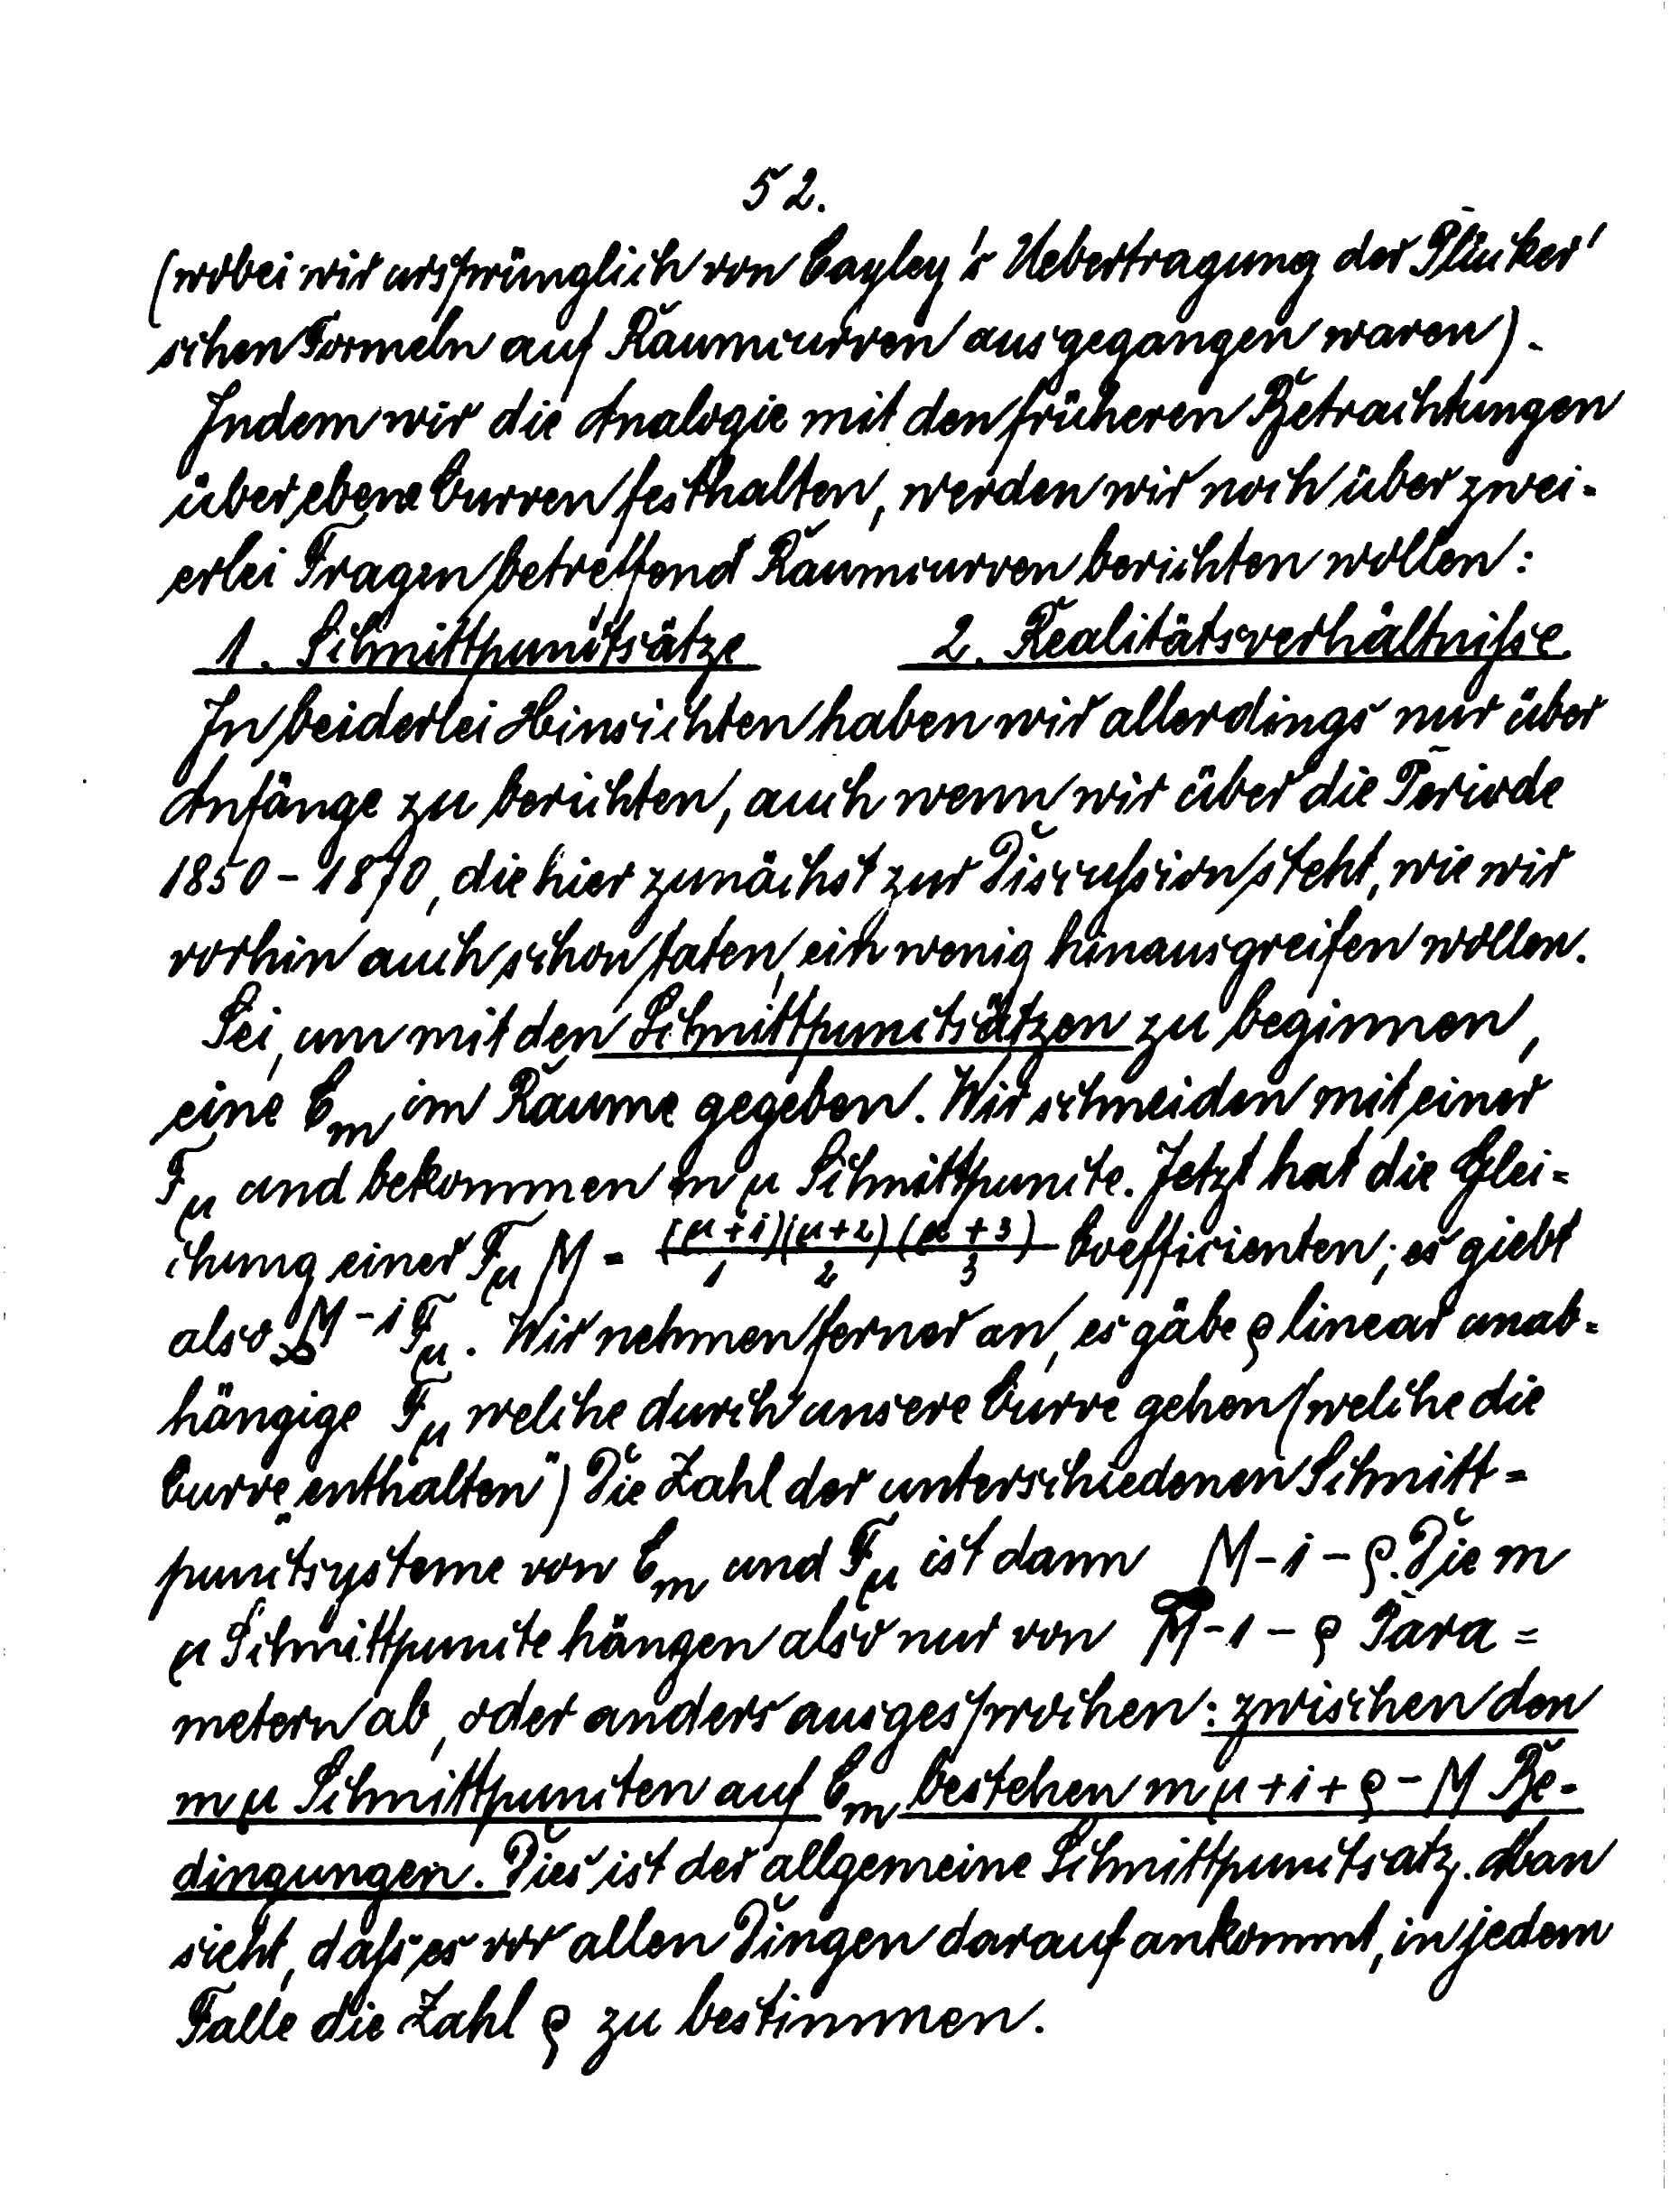 52.
(wobei wir ursprünglich von Cayley's Uebertragung der Plücker'
schen Formeln auf Raumcurven ausgegangen waren).
Indem wir die Analogie mit den früheren Betrachtungen
über ebene Curven festhalten, werden wir noch über zwei-
erlei Fragen betreffend Raumcurven berichten wollen:
1. Schnittpunctsätze 2. Realitätsverhältnisse.
In beiderlei Hinsichten haben wir allerdings nur über
Anfänge zu berichten, auch wenn wir über die Periode
1850-1870, die hier zunächst zur Discussion steht, wie wir
vorhin auch schon taten, ein wenig hinausgreifen wollen.
Sei, um mit den Schnittpunctsätzen zu beginnen,
eine C_m im Raume gegeben. Wir schneiden mit einer
F_μ und bekommen m μ Schnittpuncte. Jetzt hat die Glei=
chung einer F_μ M = (μ+1)(μ+2)(μ+3)/1 2 3 Coefficienten; es giebt
also ∞^{M-1} F_μ. Wir nehmen ferner an, es gäbe ρ linear unab-
hängige F_μ welche durch unsere Curve gehen (welche die
Curve „enthalten") Die Zahl der unterschiedenen Schnitt=
punctsysteme von C_m und F_μ ist dann ∞^{M-1-ρ}. Die m
μ Schnittpuncte hängen also nur von M-1-ρ Para=
metern ab, oder anders ausgesprochen: zwischen den
m μ Schnittpuncten auf C_m bestehen m μ+1+ρ-M Be-
dingungen. Dies ist der allgemeine Schnittpunctsatz. Man
sieht, dass es vor allen Dingen darauf ankommt, in jedem
Falle die Zahl ρ zu bestimmen.